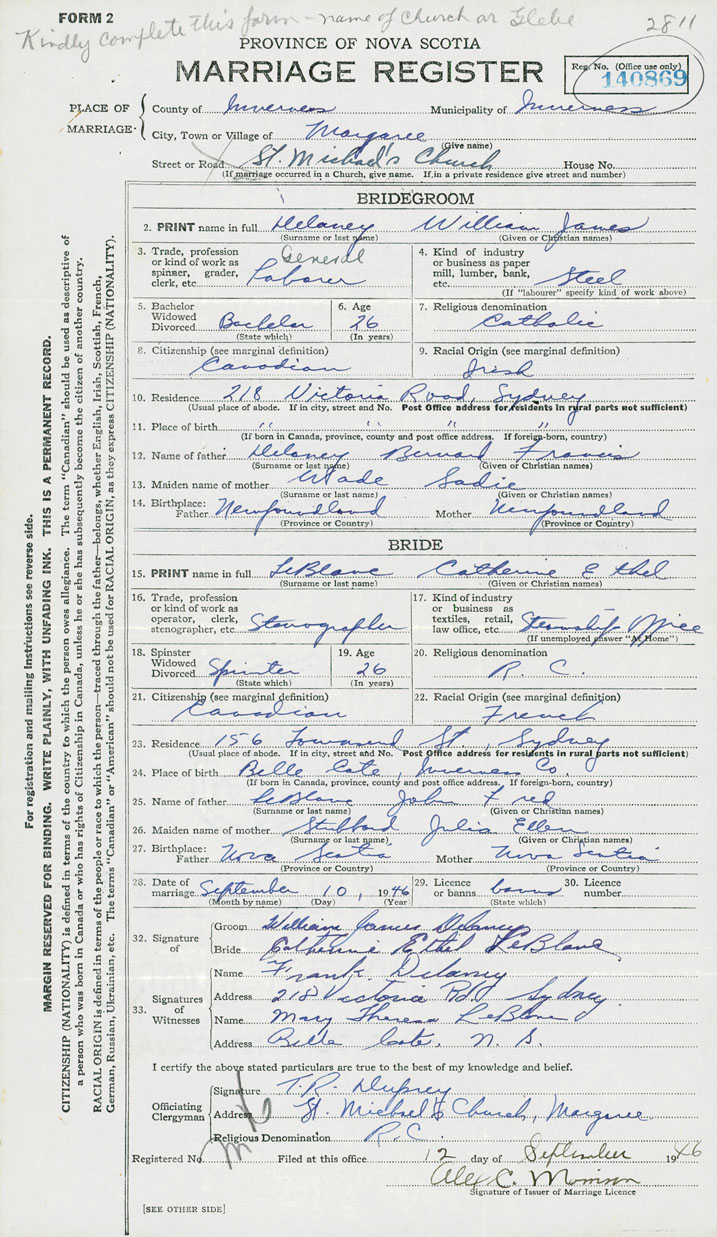 FORM 2
Kindly complete this form - name of Church or Glebe
2811
PROVINCE OF NOVA SCOTIA
MARRIAGE REGISTER
Reg. No. (Office use only)
140869
PLACE OF MARRIAGE
County of Inverness Municipality of Inverness
City, Town or Village of Margaree
(Give name)
Street or Road St. Michael's Church House No.
(If marriage occurred in a Church, give name. If in a private residence give street and number)
BRIDEGROOM
2. PRINT name in full Delaney William James
(Surname or last name) (Given or Christian names)
3. Trade, profession or kind of work as spinner, grader, clerk, etc. General Laborer
4. Kind of industry or business as paper mill, lumber, bank, etc. Steel
(If "labourer" specify kind of work above)
5. Bachelor Widowed Divorced Bachelor
(State which)
6. Age 26
(In years)
7. Religious denomination
Catholic
8. Citizenship (see marginal definition)
Canadian
9. Racial Origin (see marginal definition)
Irish
10. Residence 218 Victoria Road, Sydney
(Usual place of abode. If in city, street and No. Post Office address for residents in rural parts not sufficient)
11. Place of birth " " " "
(If born in Canada, province, county and post office address. If foreign-born, country)
12. Name of father Delaney Bernard Francis
(Surname or last name) (Given or Christian names)
13. Maiden name of mother Wade Sadie
(Surname or last name) (Given or Christian names)
14. Birthplace: Father Newfoundland Mother Newfoundland
(Province or Country) (Province or Country)
BRIDE
15. PRINT name in full LeBlanc Catherine Ethel
(Surname or last name) (Given or Christian names)
16. Trade, profession or kind of work as operator, clerk, stenographer, etc. Stenographer
17. Kind of industry or business as textiles, retail, law office, etc. Steamship Office
(If unemployed answer "At Home")
18. Spinster Widowed Divorced Spinster
(State which)
19. Age 26
(In years)
20. Religious denomination
R. C.
21. Citizenship (see marginal definition)
Canadian
22. Racial Origin (see marginal definition)
French
23. Residence 156 Townsend St, Sydney
(Usual place of abode. If in city, street and No. Post Office address for residents in rural parts not sufficient)
24. Place of birth Belle Cote, Inverness Co.
(If born in Canada, province, county and post office address. If foreign-born, country)
25. Name of father LeBlanc John Fred
(Surname or last name) (Given or Christian names)
26. Maiden name of mother Stubbard Julia Ellen
(Surname or last name) (Given or Christian names)
27. Birthplace: Father Nova Scotia Mother Nova Scotia
(Province or Country) (Province or Country)
28. Date of marriage September 10, 1946
(Month by name) (Day) (Year)
29. Licence or banns banns
(State which)
30. Licence number
32. Signature of
Groom William James Delaney
Bride Catherine Ethel LeBlanc
33. Signatures of Witnesses
Name Frank Delaney
Address 218 Victoria Rd Sydney
Name Mary Theresa LeBlanc
Address Belle Cote, N. S.
I certify the above stated particulars are true to the best of my knowledge and belief.
Officiating Clergyman
Signature T. R. Duprey
Address St. Michael's Church, Margaree
Religious Denomination R.C.
Registered No. Filed at this office 12 day of September 1946
Alex C. Morrison
Signature of Issuer of Marriage Licence
[SEE OTHER SIDE]
For registration and mailing instructions see reverse side.
MARGIN RESERVED FOR BINDING. WRITE PLAINLY, WITH UNFADING INK. THIS IS A PERMANENT RECORD.
CITIZENSHIP (NATIONALITY) is defined in terms of the country to which the person owes allegiance. The term "Canadian" should be used as descriptive of
a person who was born in Canada or who has rights of Citizenship in Canada, unless he or she has subsequently become the citizen of another country.
RACIAL ORIGIN is defined in terms of the people or race to which the person—traced through the father—belongs, whether English, Irish, Scottish, French,
German, Russian, Ukrainian, etc. The terms "Canadian" or "American" should not be used for RACIAL ORIGIN, as they express CITIZENSHIP (NATIONALITY).